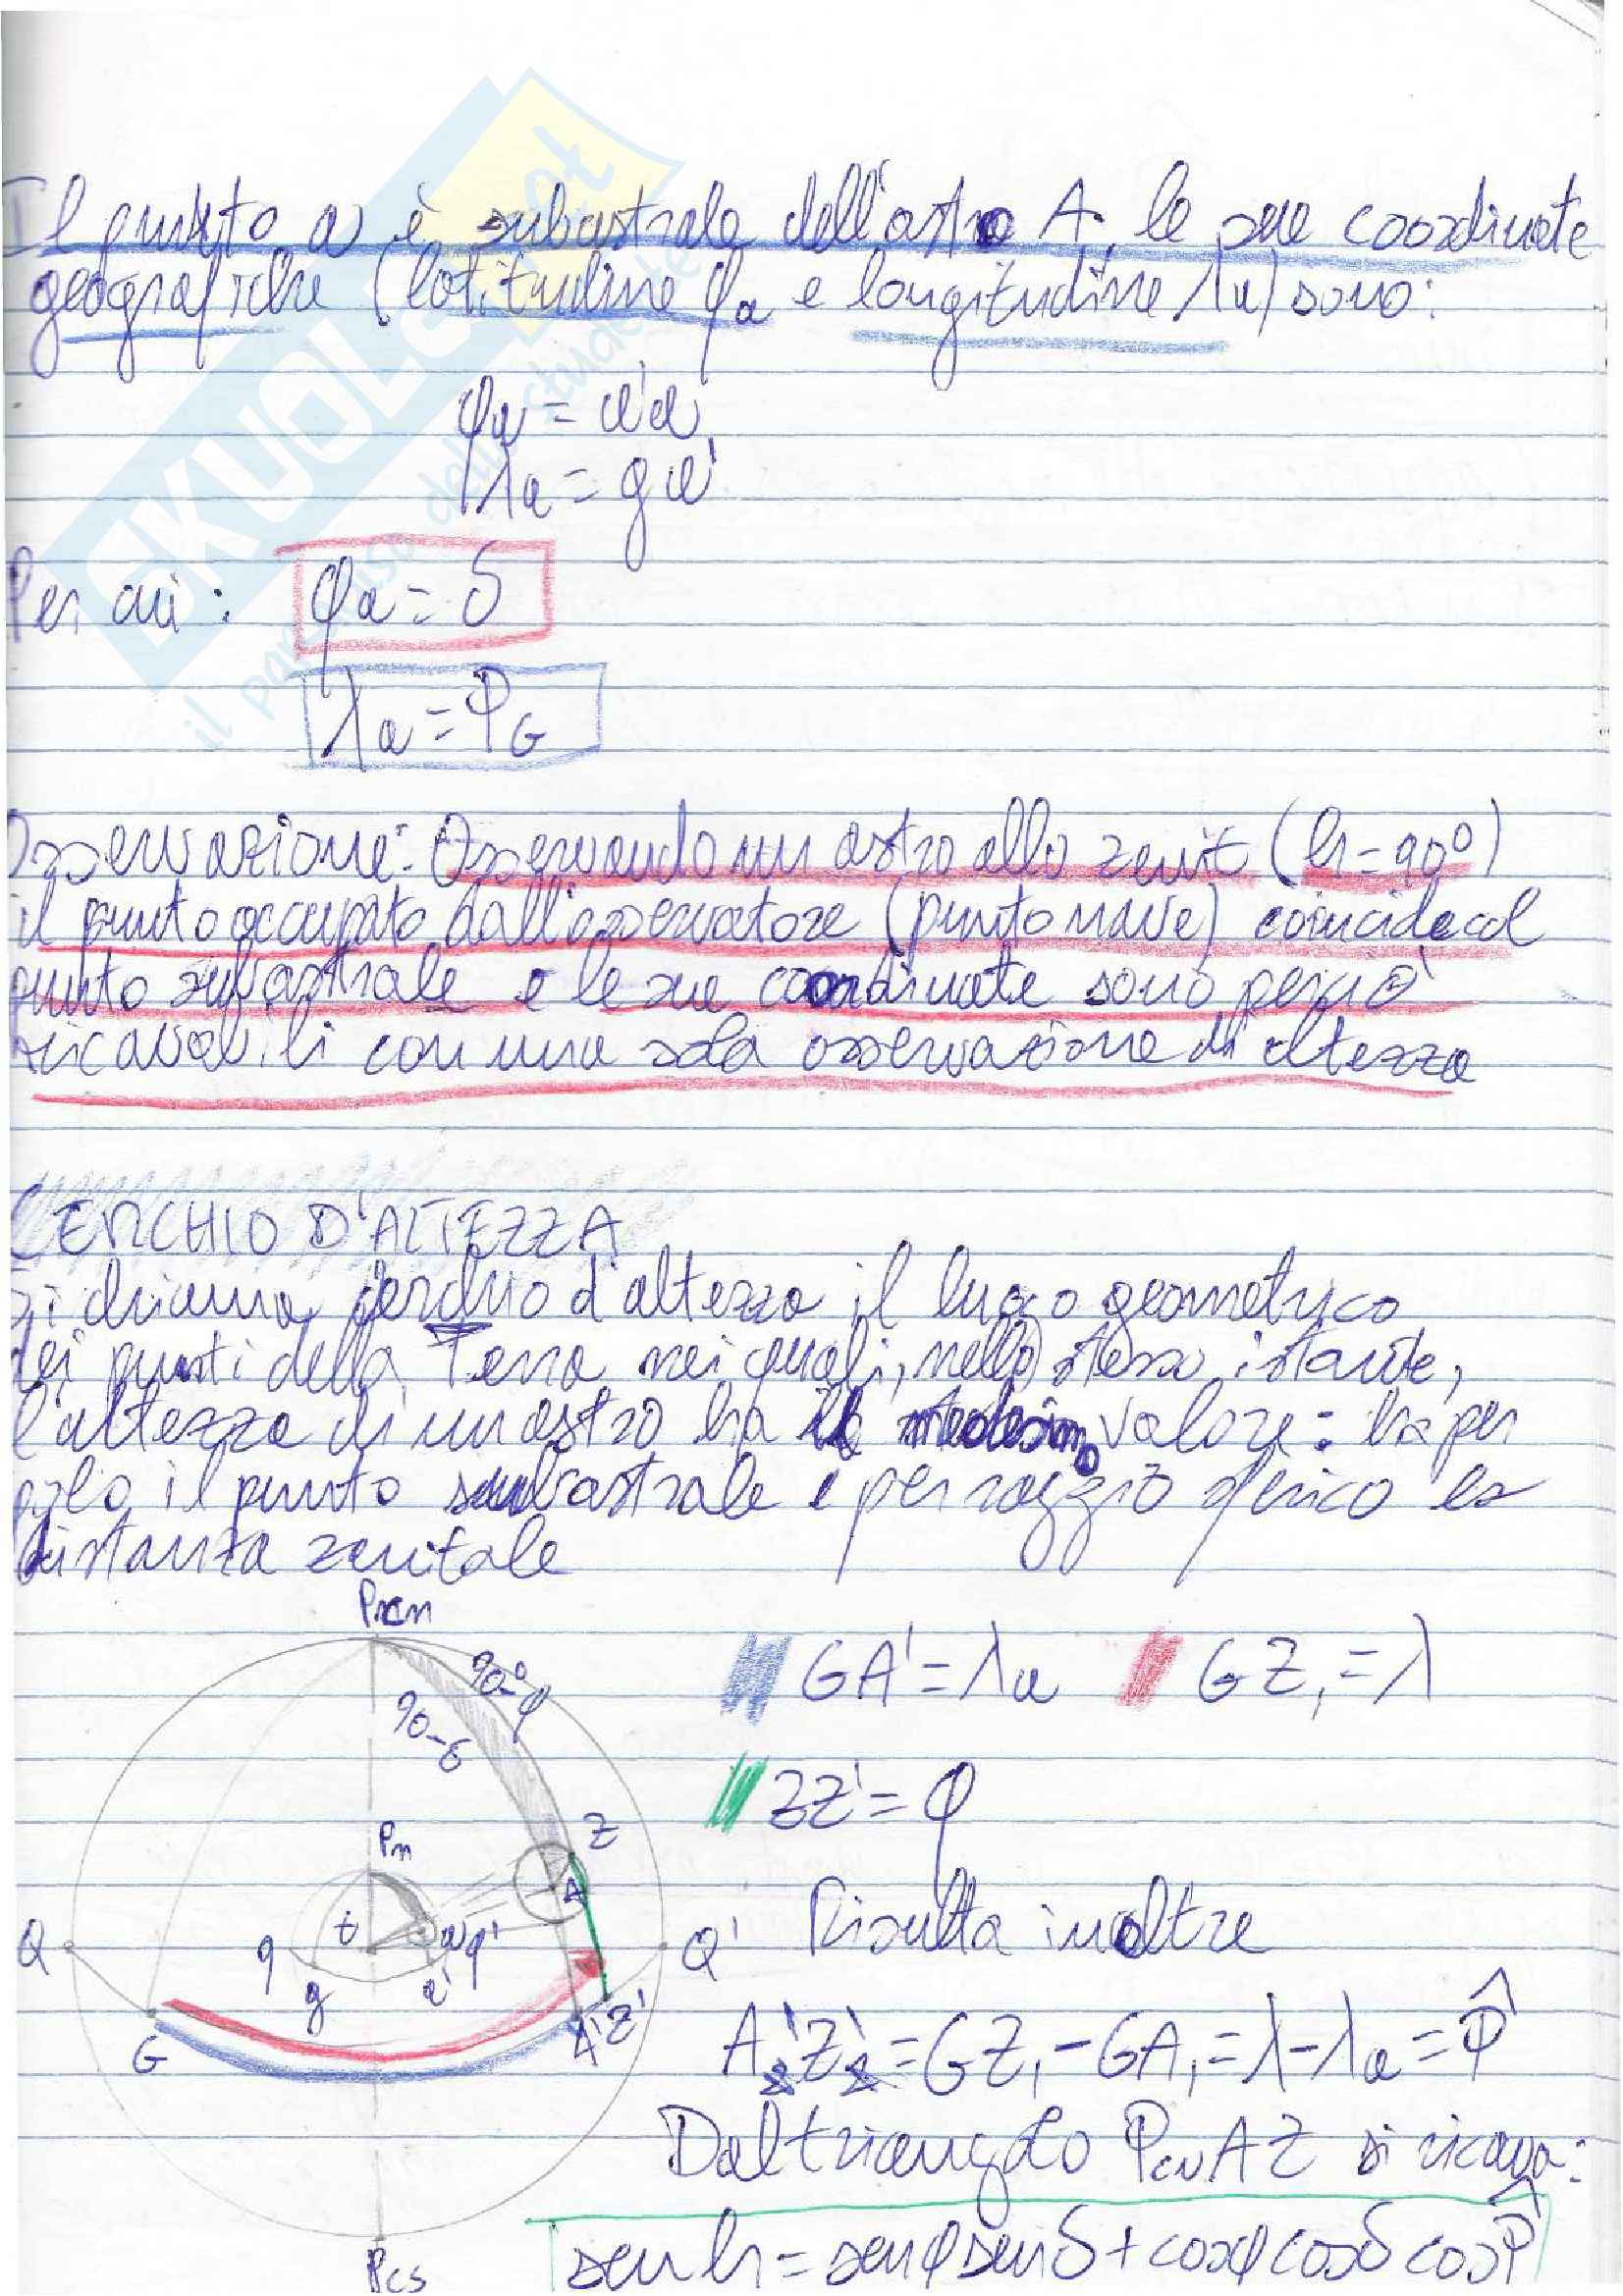 Il punto a è subastrale dell'astro A, le sue coordinate
geografiche (latitudine φa e longitudine λa) sono:
φa = a'a
λa = ga'
Per cui: φa = δ
λa = PG
Osservazione: Osservando un astro allo zenit (h=90°)
il punto occupato dall'osservatore (punto nave) coincide col
punto subastrale e le sue coordinate sono perciò
ricavabili con una sola osservazione di altezza
CERCHIO D'ALTEZZA
Si chiama cerchio d'altezza il luogo geometrico
dei punti della Terra nei quali, nello stesso istante,
l'altezza di un astro ha il medesimo valore: ha per
polo il punto subastrale e per raggio sferico la
distanza zenitale
Pcn
90°-φ
90-δ
Z
Pn
A
Q
t
a
q'
Q'
q
g
a'
G
A'
Z'
Pcs
GA' = λa GZ, = λ
ZZ' = φ
Risulta inoltre
A'Z' = GZ, - GA, = λ-λa = P̂
Dal triangolo PcnAZ si ricava:
sen h = senφ senδ + cosφ cosδ cosP̂
SKUOLA.net
il paradiso dello studente